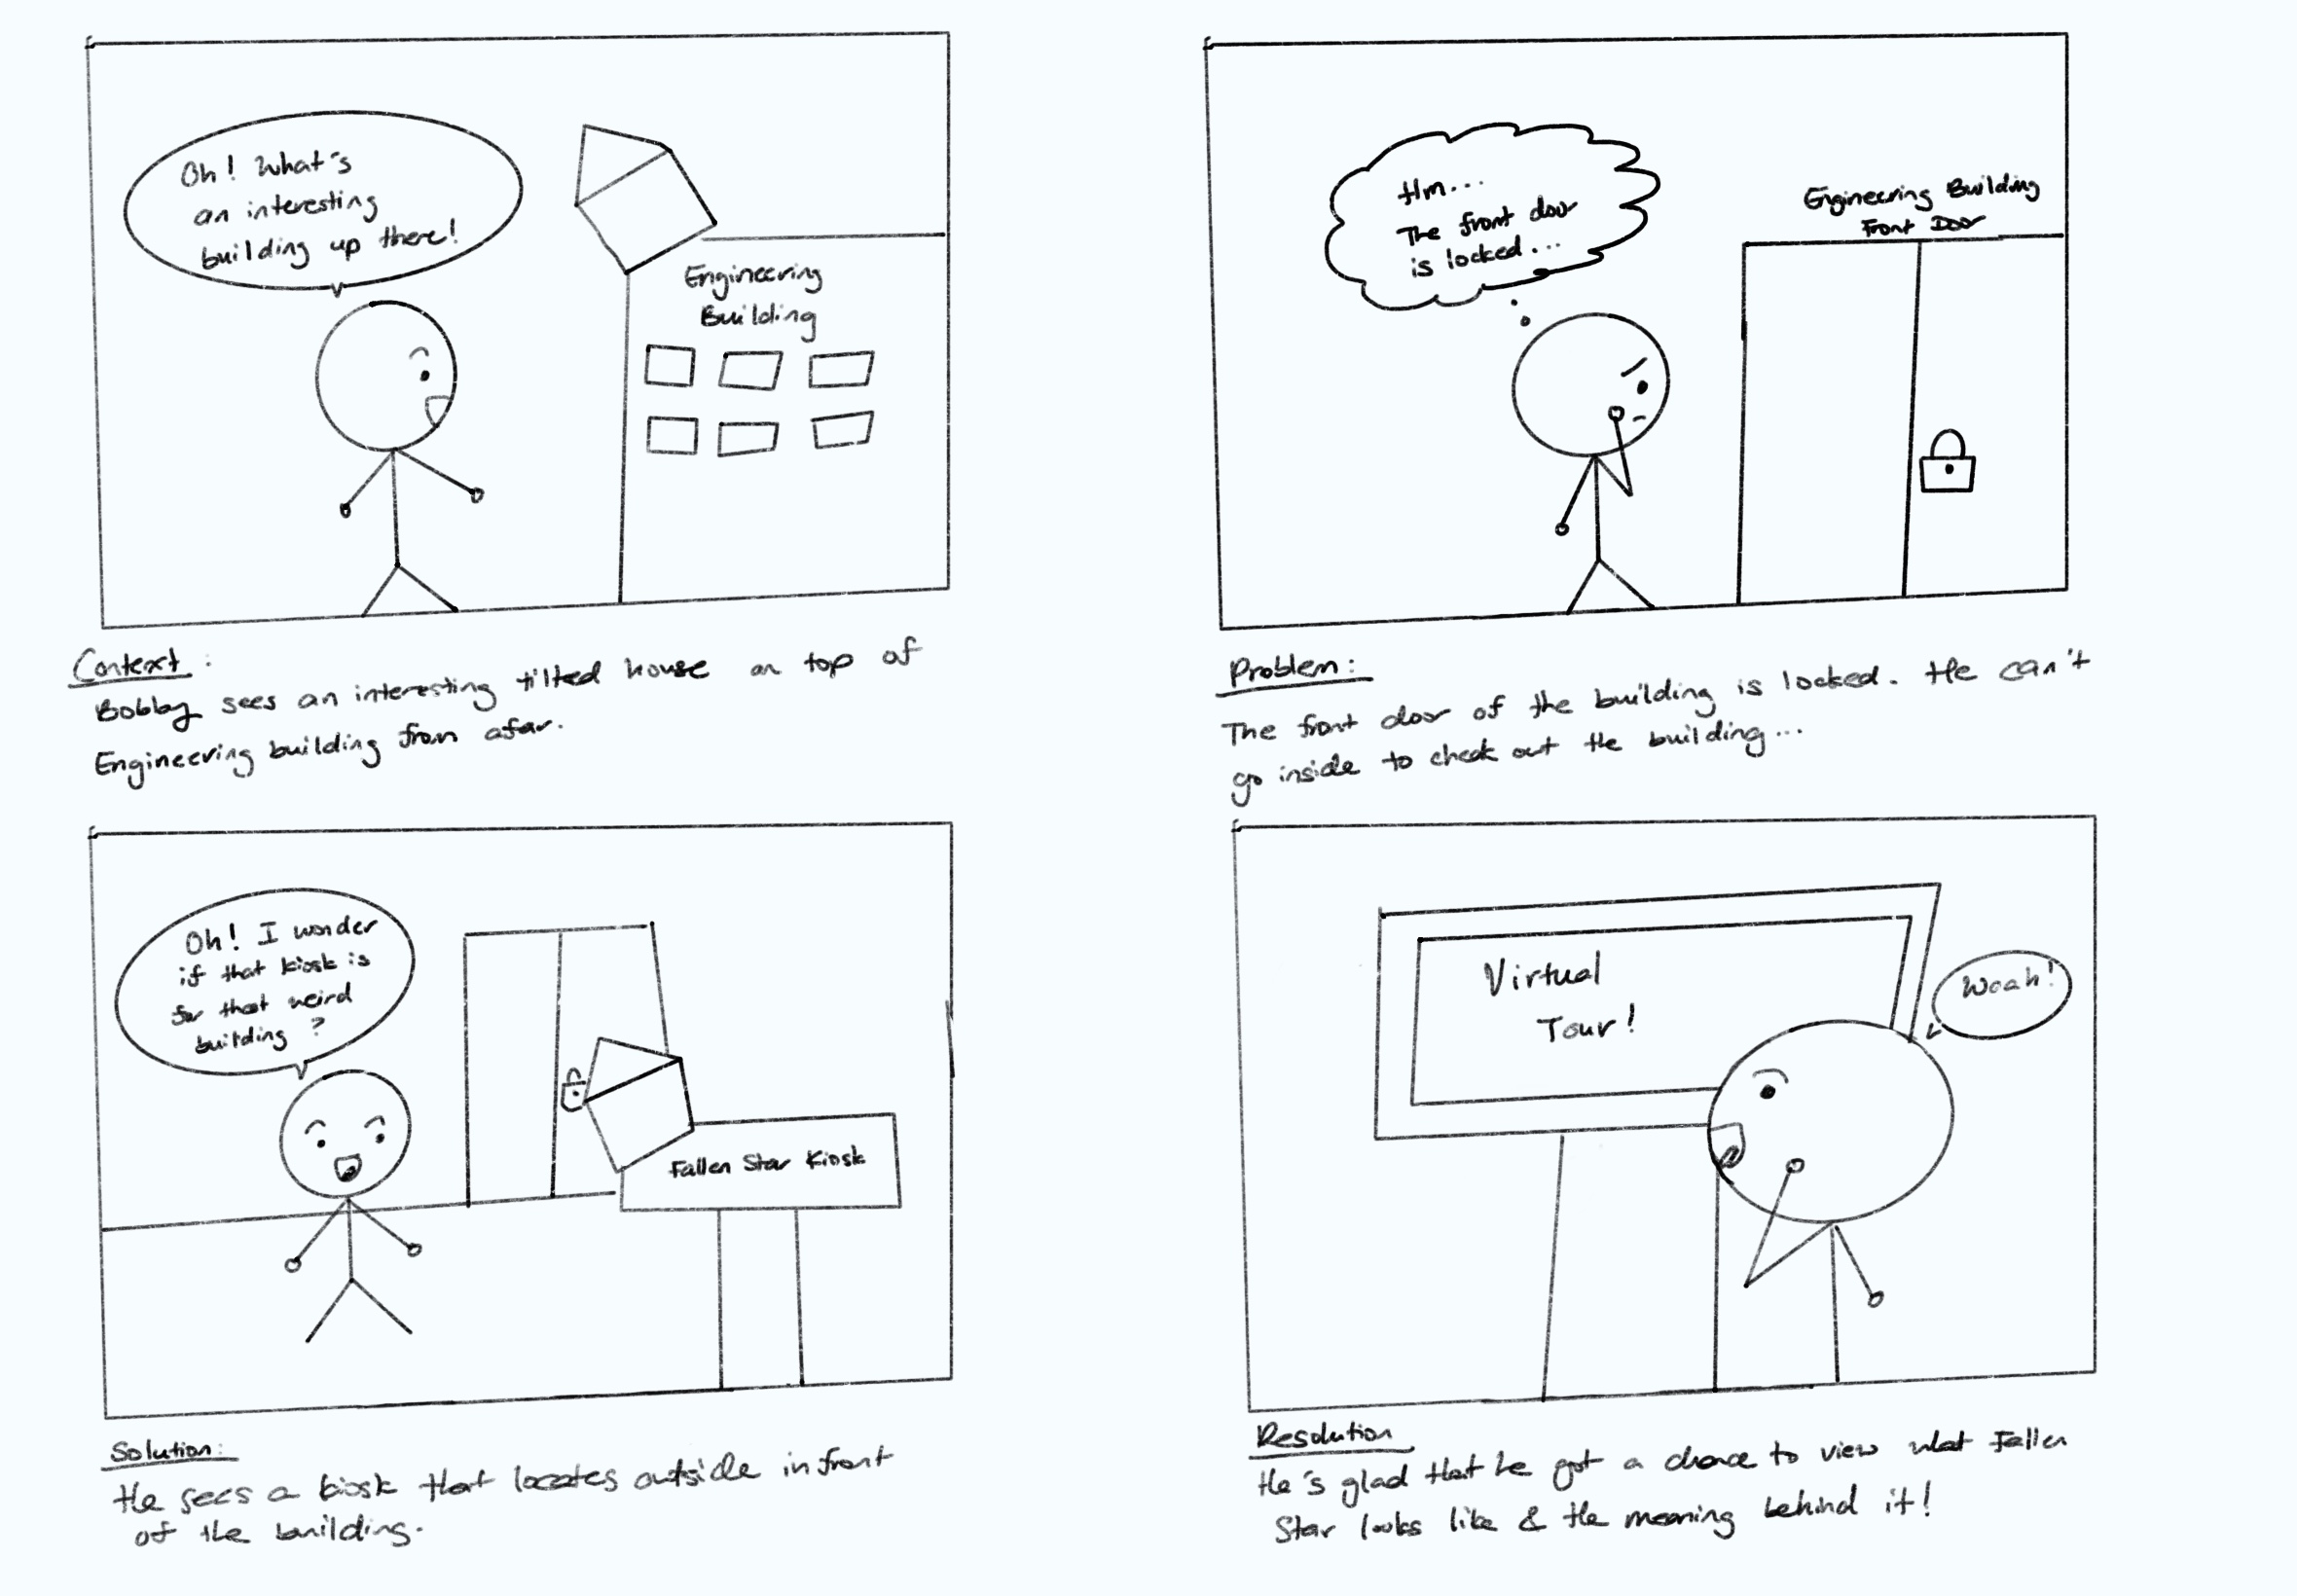 Oh! What's
an interesting
building up there!
Engineering
Building
Context:
Bobby sees an interesting tilted house on top of
Engineering building from afar.
Hm...
The front door
is locked...
Engineering Building
Front Door
Problem:
The front door of the building is locked. He can't
go inside to check out the building...
Oh! I wonder
if that kiosk is
for that weird
building?
Fallen Star Kiosk
Solution:
He sees a kiosk that locates outside infront
of the building.
Virtual
Tour!
Woah!
Resolution
He's glad that he got a chance to view what Fallen
Star looks like & the meaning behind it!